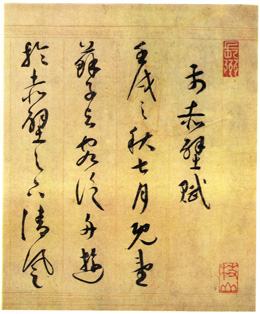 前赤壁賦
壬戌之秋七月既望
蘇子與客泛舟遊
於赤壁之下清風
枝山